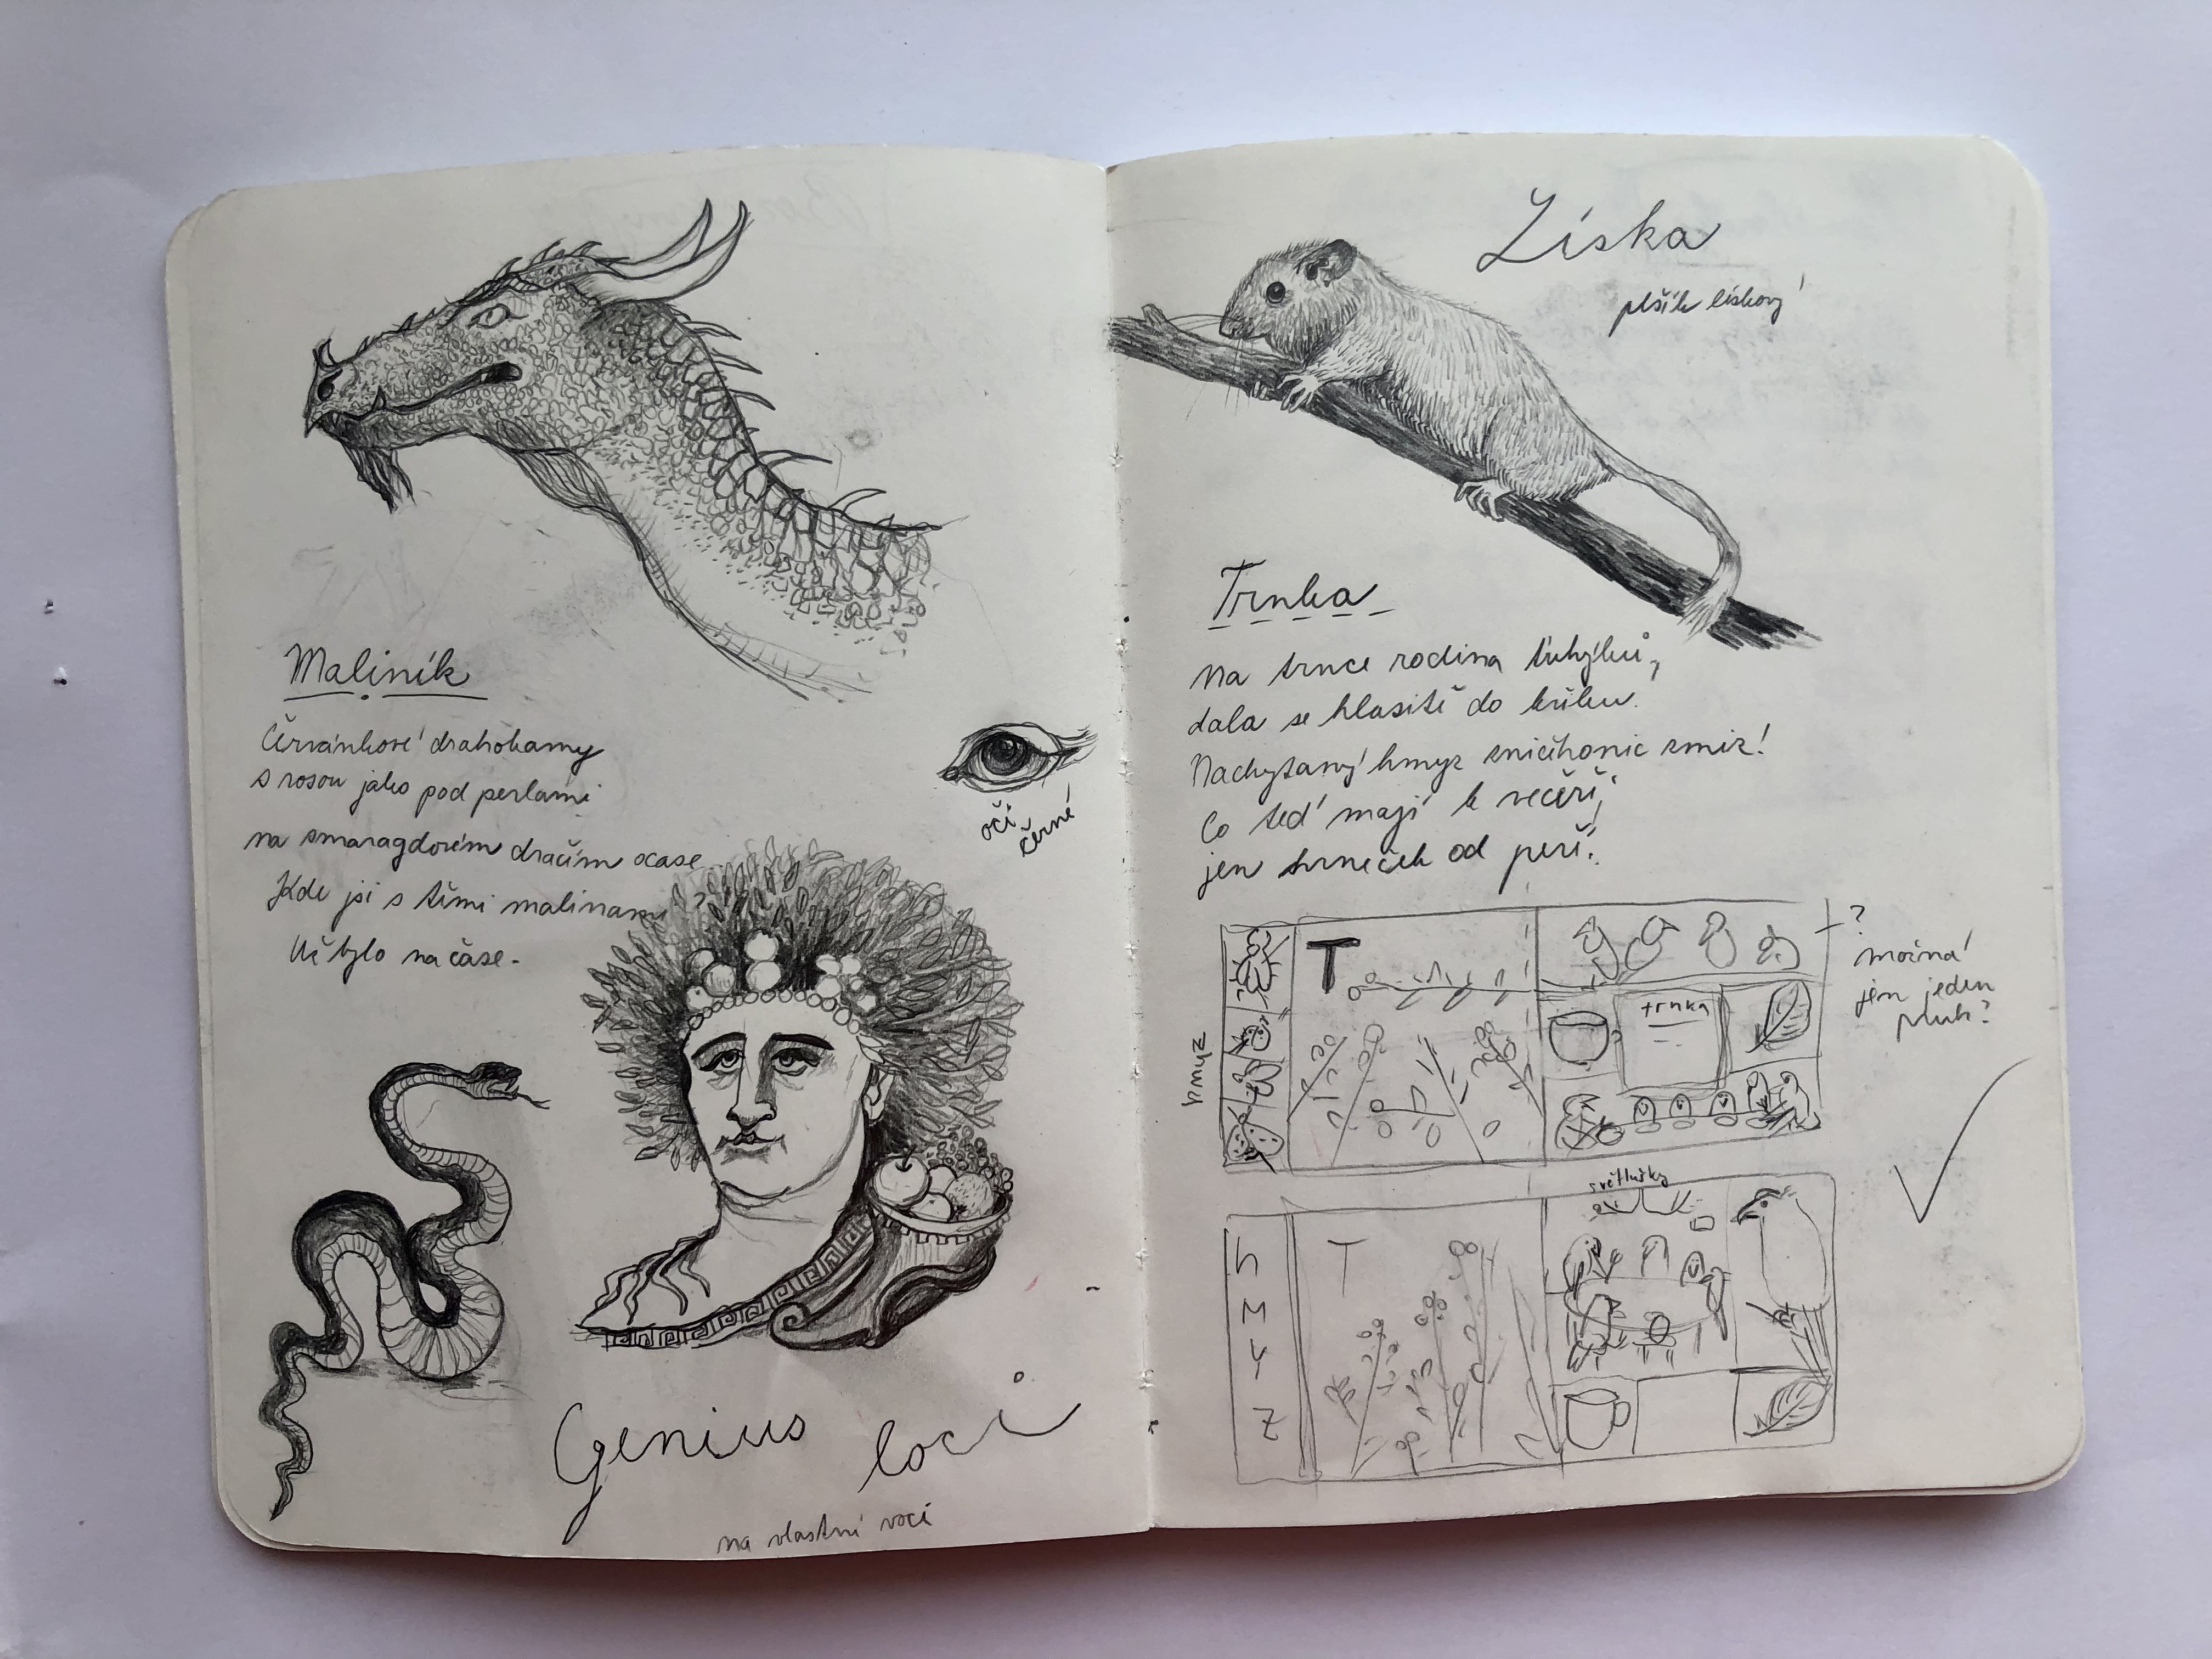 Maliník
Červánkové drahokamy
s rosou jako pod perlami
na smaragdovém dračím ocase
Kde jsi s těmi malinami?
Už bylo na čase.
oči
černé
Genius loci
na vlastní voci
Líska
plšík lískový
Trnka
Na trnce rodina ťuhýků,
dala se hlasitě do křiku.
Nachytaný hmyz zničehonic zmiz!
Co teď mají k večeři,
jen hrneček od peří.
hmyz
T
trnka
?
možná
jen jeden
pták?
světlušky
H
M
Y
Z
T